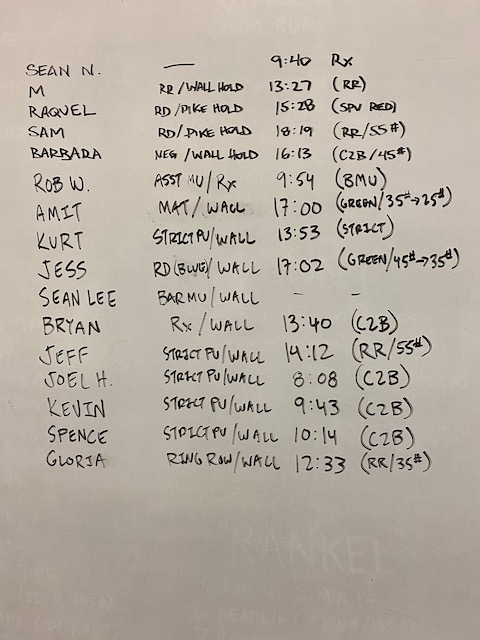 SEAN N. — 9:40 Rx
M RR/WALL HOLD 13:27 (RR)
RAQUEL RD/PIKE HOLD 15:28 (SPU RED)
SAM RD/PIKE HOLD 18:19 (RR/55#)
BARBARA NEG/WALL HOLD 16:13 (C2B/45#)
ROB W. ASST MU/Rx 9:54 (BMU)
AMIT MAT/WALL 17:00 (GREEN/35#→25#)
KURT STRICT PU/WALL 13:53 (STRICT)
JESS RD(BLUE)/WALL 17:02 (GREEN/45#→35#)
SEAN LEE BAR MU/WALL - -
BRYAN Rx/WALL 13:40 (C2B)
JEFF STRICT PU/WALL 14:12 (RR/55#)
JOEL H. STRICT PU/WALL 8:08 (C2B)
KEVIN STRICT PU/WALL 9:43 (C2B)
SPENCE STRICT PU/WALL 10:14 (C2B)
GLORIA RING ROW/WALL 12:33 (RR/35#)
RANKEL